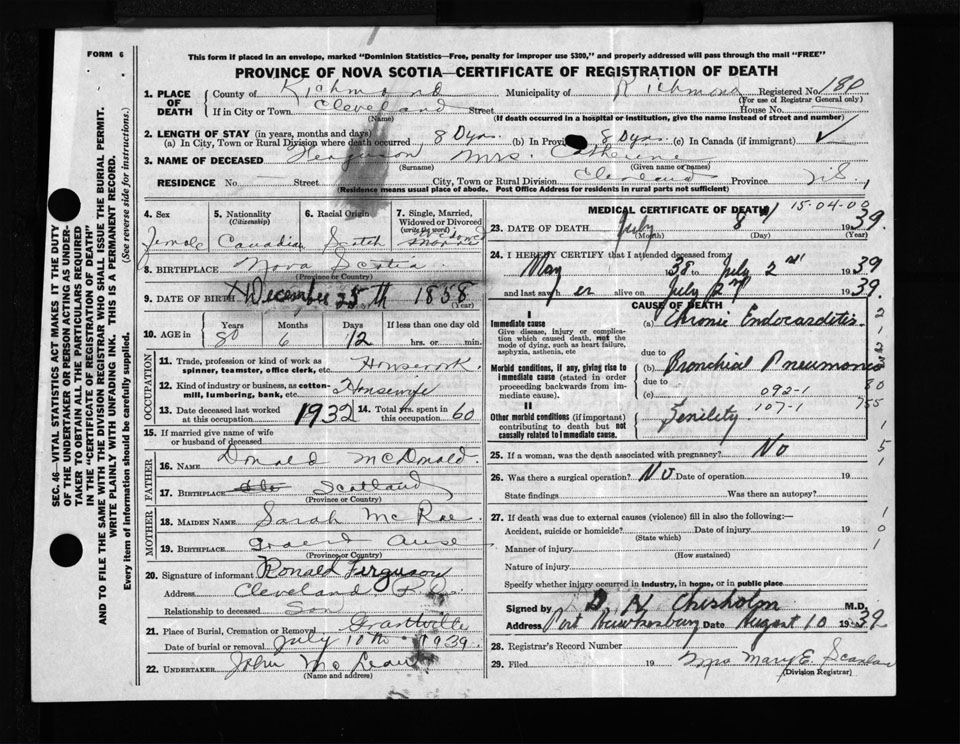 FORM 6
This form if placed in an envelope, marked "Dominion Statistics—Free, penalty for improper use $300," and properly addressed will pass through the mail "FREE"
PROVINCE OF NOVA SCOTIA—CERTIFICATE OF REGISTRATION OF DEATH
SEC. 46—VITAL STATISTICS ACT MAKES IT THE DUTY
OF THE UNDERTAKER OR PERSON ACTING AS UNDER-
TAKER TO OBTAIN ALL THE PARTICULARS REQUIRED
IN THE "CERTIFICATE OF REGISTRATION OF DEATH"
AND TO FILE THE SAME WITH THE DIVISION REGISTRAR WHO SHALL ISSUE THE BURIAL PERMIT.
WRITE PLAINLY WITH UNFADING INK. THIS IS A PERMANENT RECORD.
Every item of information should be carefully supplied. (See reverse side for instructions.)
1. PLACE OF DEATH County of Richmond Municipality of Richmond Registered No. 180
(For use of Registrar General only)
If in City or Town Cleveland Street House No.
(Name) (If death occurred in a hospital or institution, give the name instead of street and number)
2. LENGTH OF STAY (in years, months and days)
(a) In City, Town or Rural Division where death occurred 8 Dys. (b) In Province 8 Dys. (c) In Canada (if immigrant) ✓
3. NAME OF DECEASED Ferguson Mrs. Catherine
(Surname) (Given name or names)
RESIDENCE No. Street City, Town or Rural Division Cleveland Province N.S.
(Residence means usual place of abode. Post Office Address for residents in rural parts not sufficient)
4. Sex 5. Nationality (Citizenship) 6. Racial Origin 7. Single, Married, Widowed or Divorced (write the word)
Female Canadian Scotch
8. BIRTHPLACE Nova Scotia
(Province or Country)
9. DATE OF BIRTH December 25th 1858
(Year)
10. AGE in Years 80 Months 6 Days 12 If less than one day old hrs. or min.
OCCUPATION
11. Trade, profession or kind of work as spinner, teamster, office clerk, etc. Housework
12. Kind of industry or business, as cotton-mill, lumbering, bank, etc. Housewife
13. Date deceased last worked at this occupation 1932 14. Total yrs. spent in this occupation 60
15. If married give name of wife or husband of deceased
FATHER
16. NAME Donald McDonald
17. BIRTHPLACE Scotland
(Province or Country)
MOTHER
18. MAIDEN NAME Sarah McRae
19. BIRTHPLACE Grand Anse
(Province or Country)
20. Signature of informant Ronald Ferguson
Address Cleveland
Relationship to deceased Son
21. Place of Burial, Cremation or Removal Grantville
Date of burial or removal July 10th 1939
22. UNDERTAKER John McLean
(Name and address)
MEDICAL CERTIFICATE OF DEATH 15-04-00
23. DATE OF DEATH July 8 1939
(Month) (Day) (Year)
24. I HEREBY CERTIFY that I attended deceased from
May 1938 to July 2nd 1939
and last saw her alive on July 2nd 1939.
CAUSE OF DEATH
I
Immediate cause (a) Chronic Endocarditis
Give disease, injury or complication which caused death, not the mode of dying, such as heart failure, asphyxia, asthenia, etc
due to
Morbid conditions, if any, giving rise to immediate cause (stated in order proceeding backwards from immediate cause). (b) Bronchial Pneumonia
due to
(c) 092-1
107-1
II
Other morbid conditions (if important) contributing to death but not causally related to immediate cause. Senility
25. If a woman, was the death associated with pregnancy? No
26. Was there a surgical operation? No Date of operation 19
State findings Was there an autopsy?
27. If death was due to external causes (violence) fill in also the following:—
Accident, suicide or homicide? Date of injury 19
(State which)
Manner of injury
(How sustained)
Nature of injury
Specify whether injury occurred in industry, in home, or in public place
Signed by D. H. Chisholm M.D.
Address Port Hawkesbury Date August 10 1939
28. Registrar's Record Number
29. Filed 19 Mrs Mary E. Scanlan
(Division Registrar)